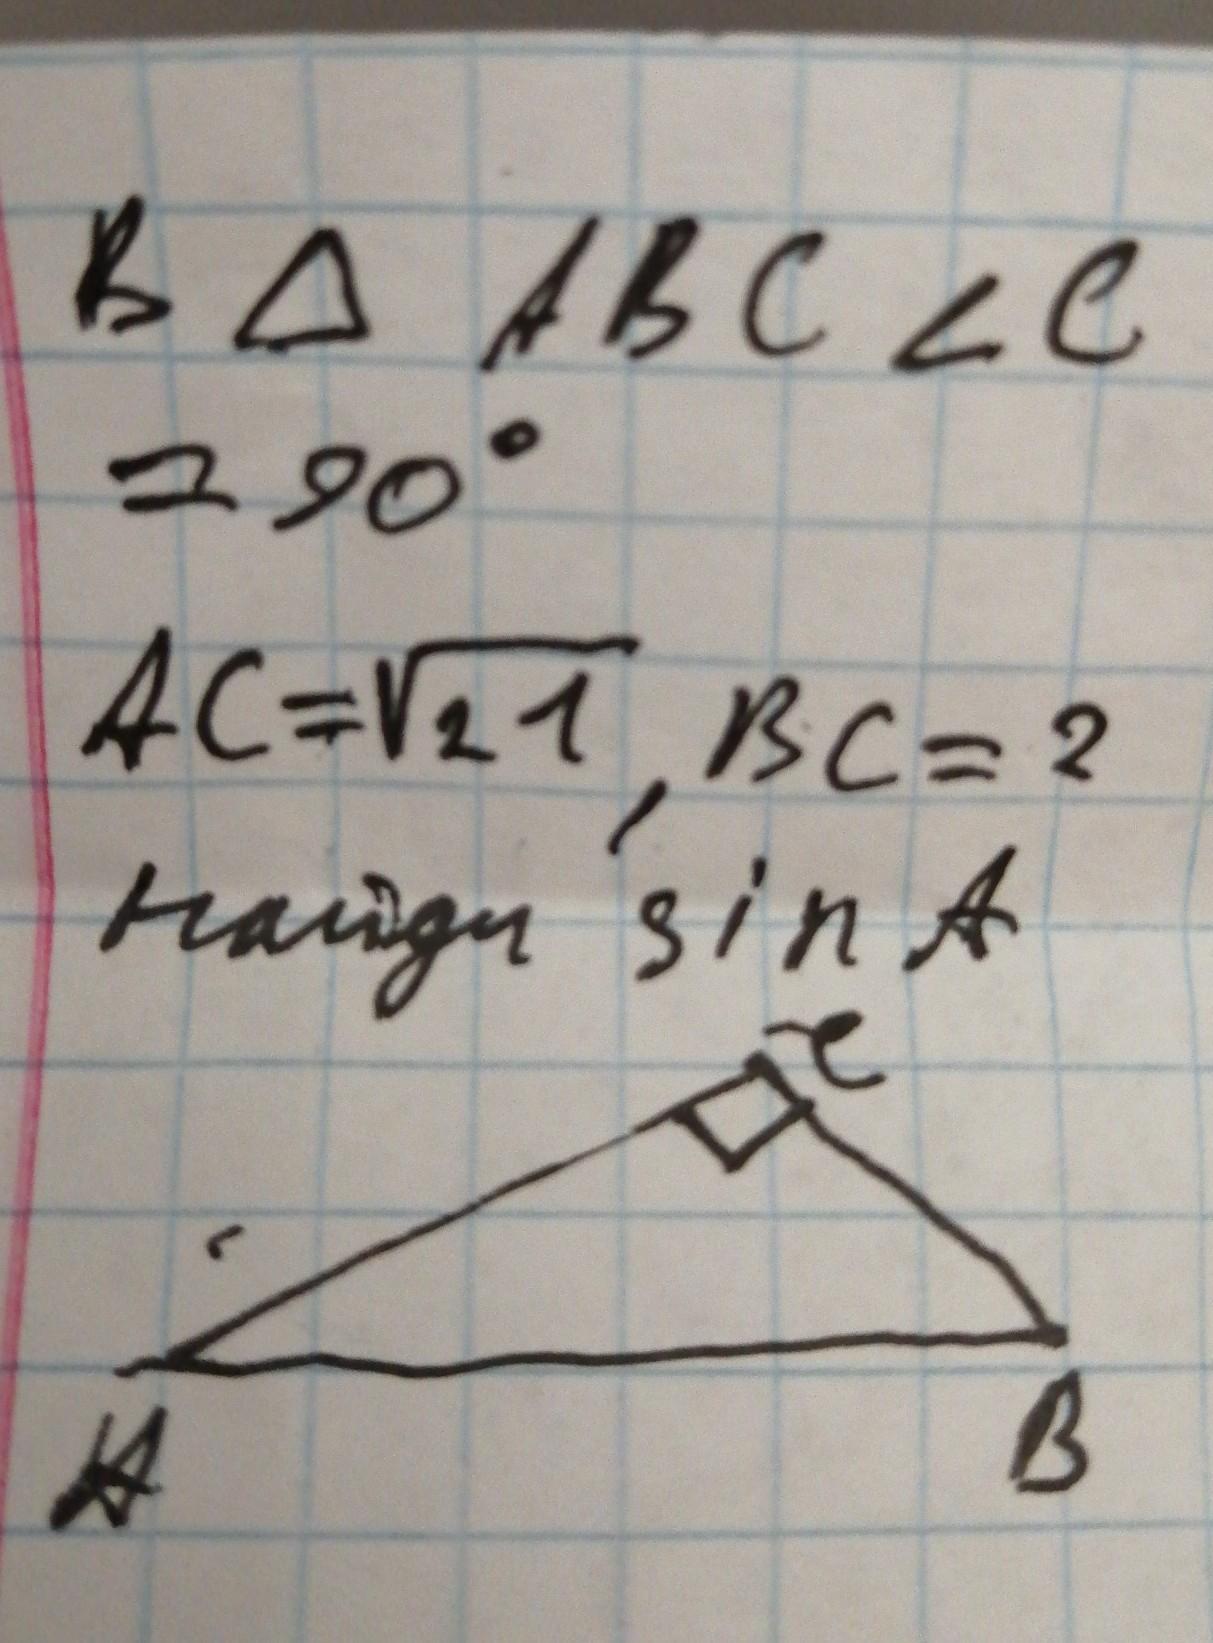 В △ ABC ∠C
= 90°
AC=√21, BC=2
найди sin A
C
A
B